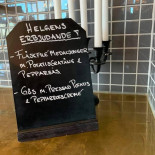 HELGENS
ERBJUDANDE !
- FLÄSKFILÉ MEDALJONGER
M POTATISGRATÄNG &
PEPPARSÅS
- GÖS M PRESSAD POTATIS
& PEPPARROTSCREME